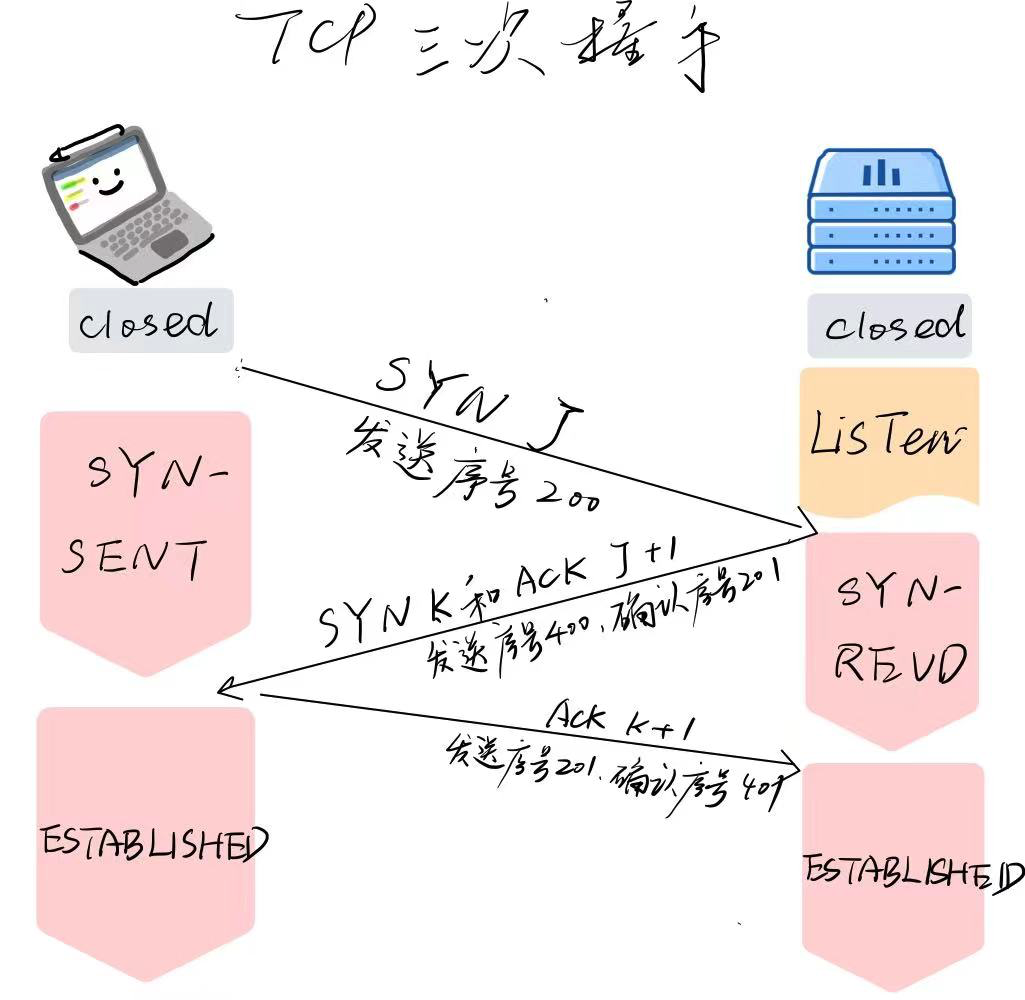 TCP 三次握手
closed
closed
SYN J
发送序号200
LISTen
SYN-
SENT
SYN K和 ACK J+1
发送序号400、确认序号201
SYN-
REVD
ACK K+1
发送序号201、确认序号401
ESTABLISHED
ESTABLISHED